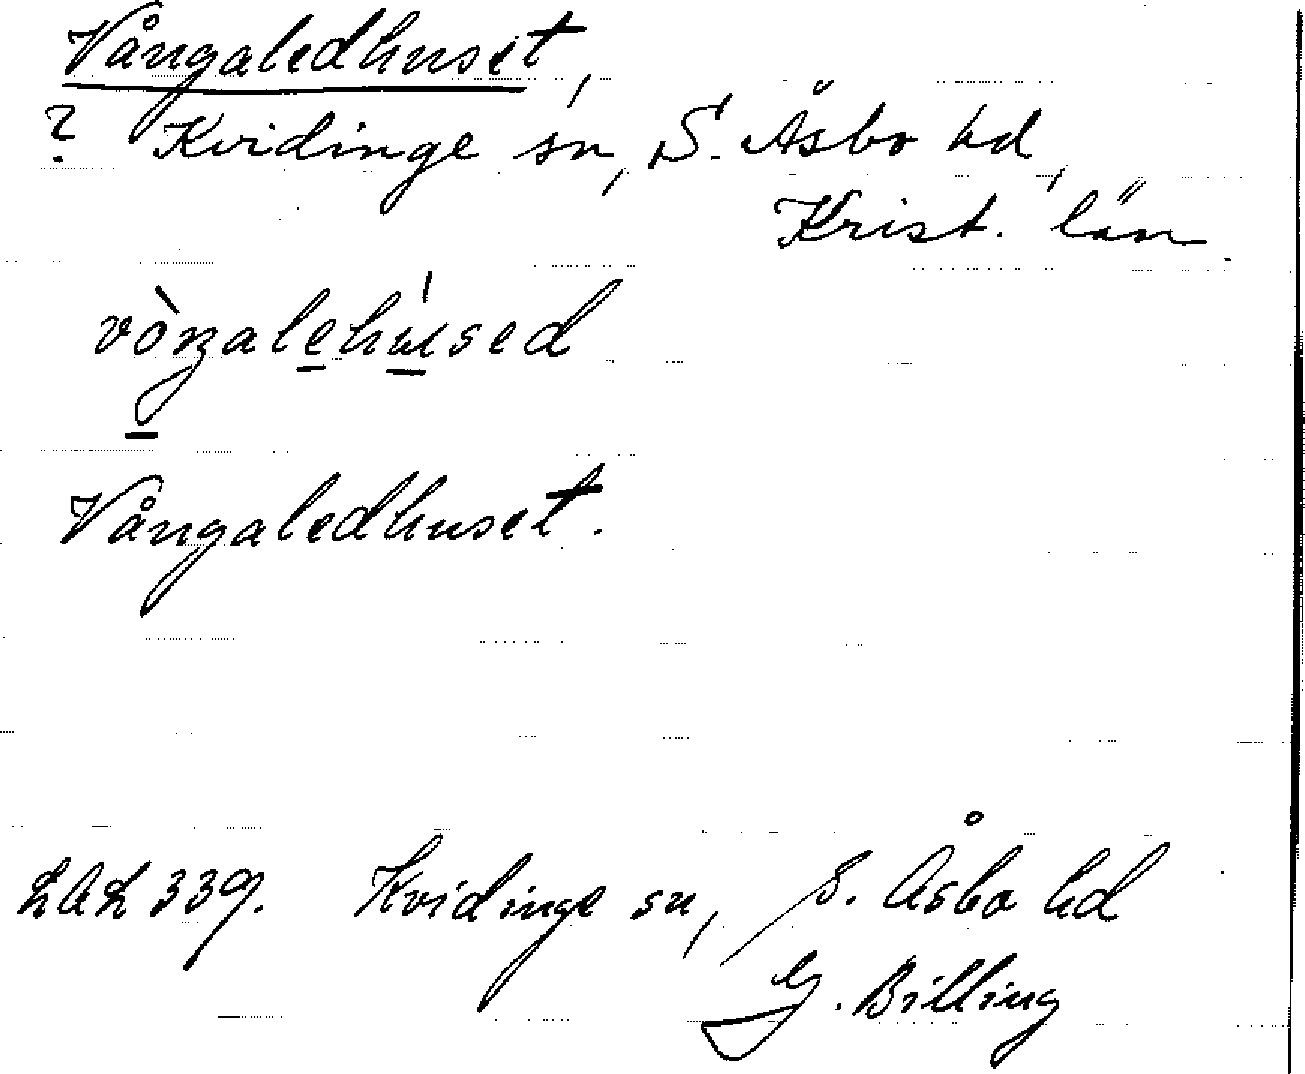 Vångaledhuset,
? Kvidinge sn, S. Åsbo hd,
Krist. län.
Vångaledhuset.
LAL 339. Kvidinge sn, S. Åsbo hd
G. Billing